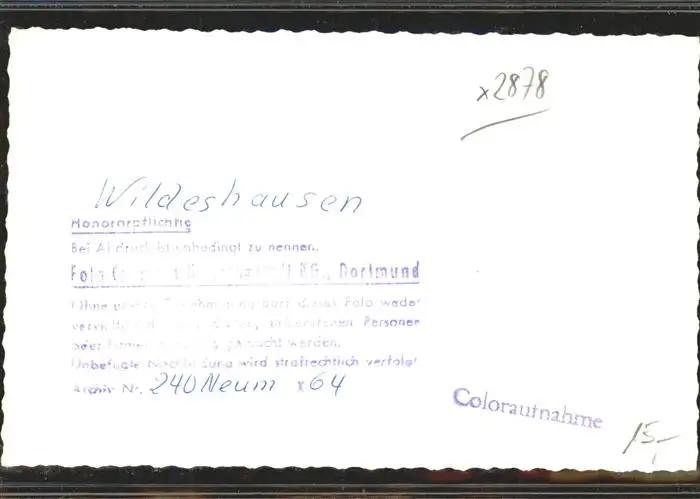 x2878
Wildeshausen
Honorarpflichtig
Bei Abdruck ist unbedingt zu nennen:
Foto KG., Dortmund
Ohne unsere Genehmigung darf dieses Foto weder
Personen
oder Firmen gemacht werden.
Unbefugte wird strafrechtlich verfolgt
Archiv Nr. 240 Neum x 64
Coloraufnahme
15,-